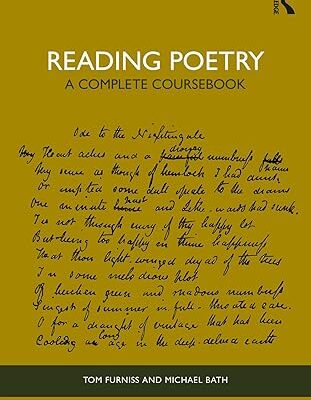 EDGE
READING POETRY
A COMPLETE COURSEBOOK
Ode to the Nightingale
drowsy
My Heart aches and a painful numbness falls pains
My sense as though of hemlock I had drunk
Or emptied some dull opiate to the drains
past
One minute and Lethe-wards had sunk.
Tis not through envy of thy happy lot
But being too happy in thine happiness
That thou light-winged dryad of the trees
In some melodious plot
Of beechen green and shadows numberless
Singest of summer in full-throated ease.
O for a draught of vintage that has been
long
Cooling an age in the deep-delved earth
TOM FURNISS AND MICHAEL BATH